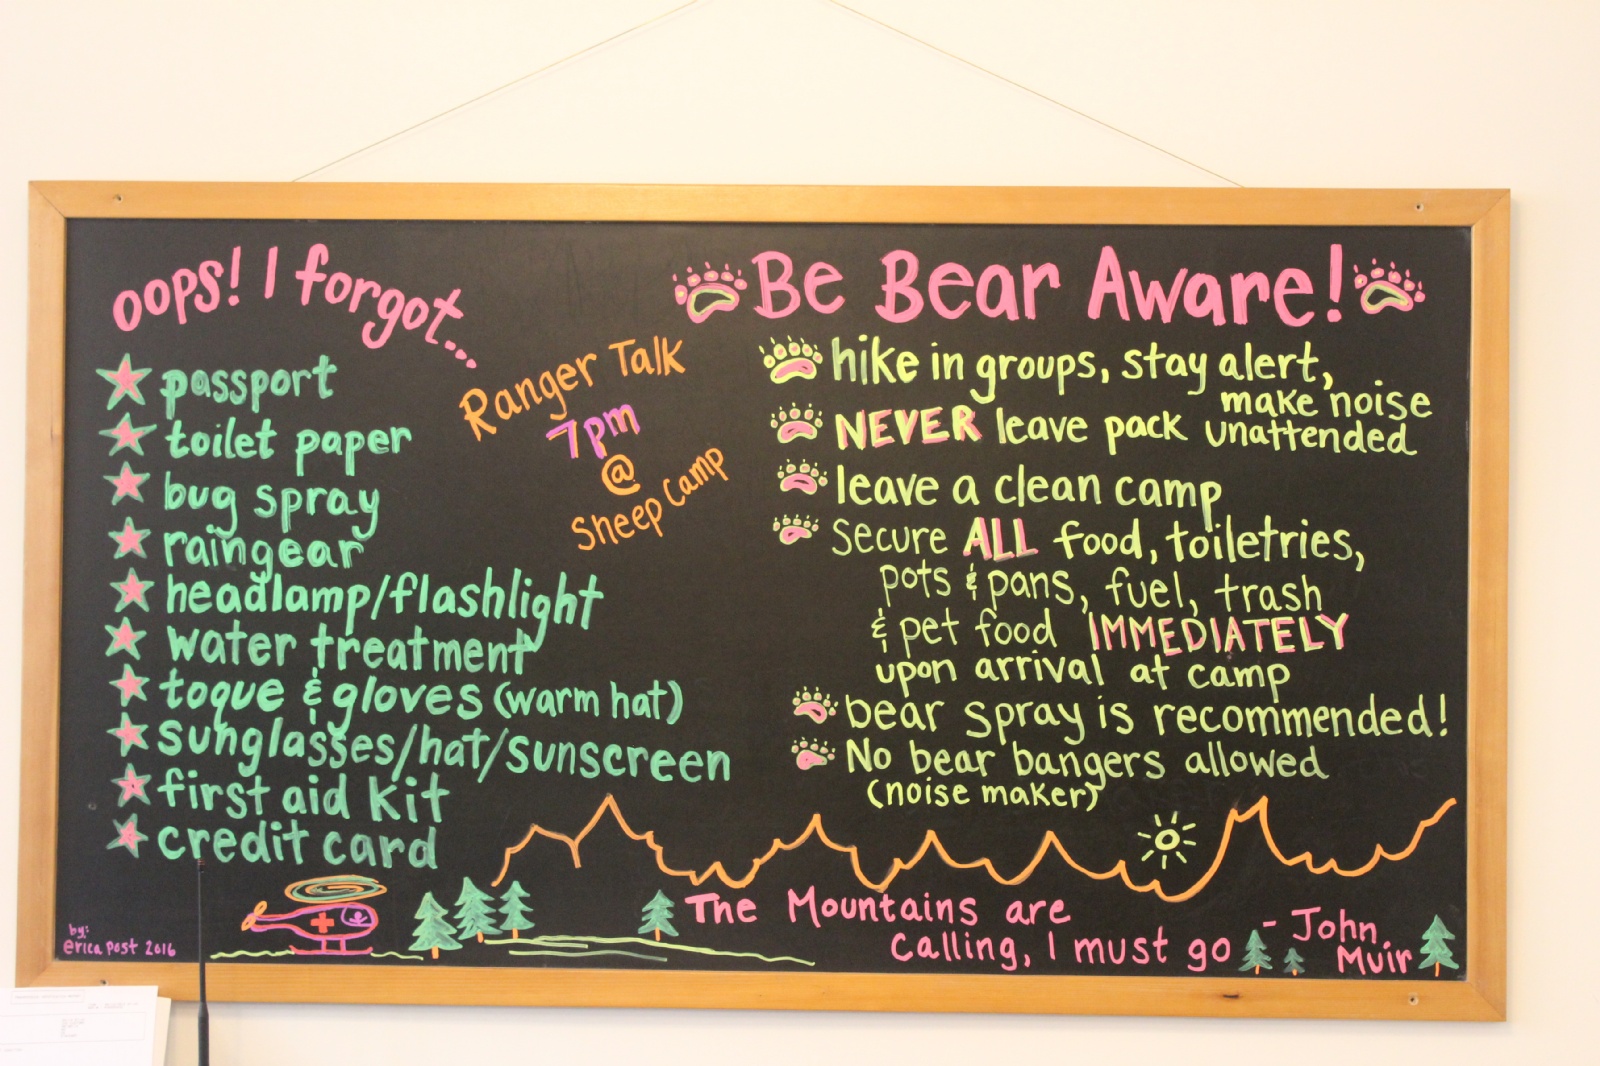 oops! I forgot...
passport
toilet paper
bug spray
raingear
headlamp/flashlight
water treatment
toque & gloves (warm hat)
sunglasses/hat/sunscreen
first aid kit
credit card
Ranger Talk
7pm
@
Sheep Camp
Be Bear Aware!
hike in groups, stay alert,
make noise
NEVER leave pack unattended
leave a clean camp
secure ALL food, toiletries,
pots & pans, fuel, trash
& pet food IMMEDIATELY
upon arrival at camp
bear spray is recommended!
No bear bangers allowed
(noise maker)
The Mountains are
calling, I must go
- John
Muir
by:
erica post 2016